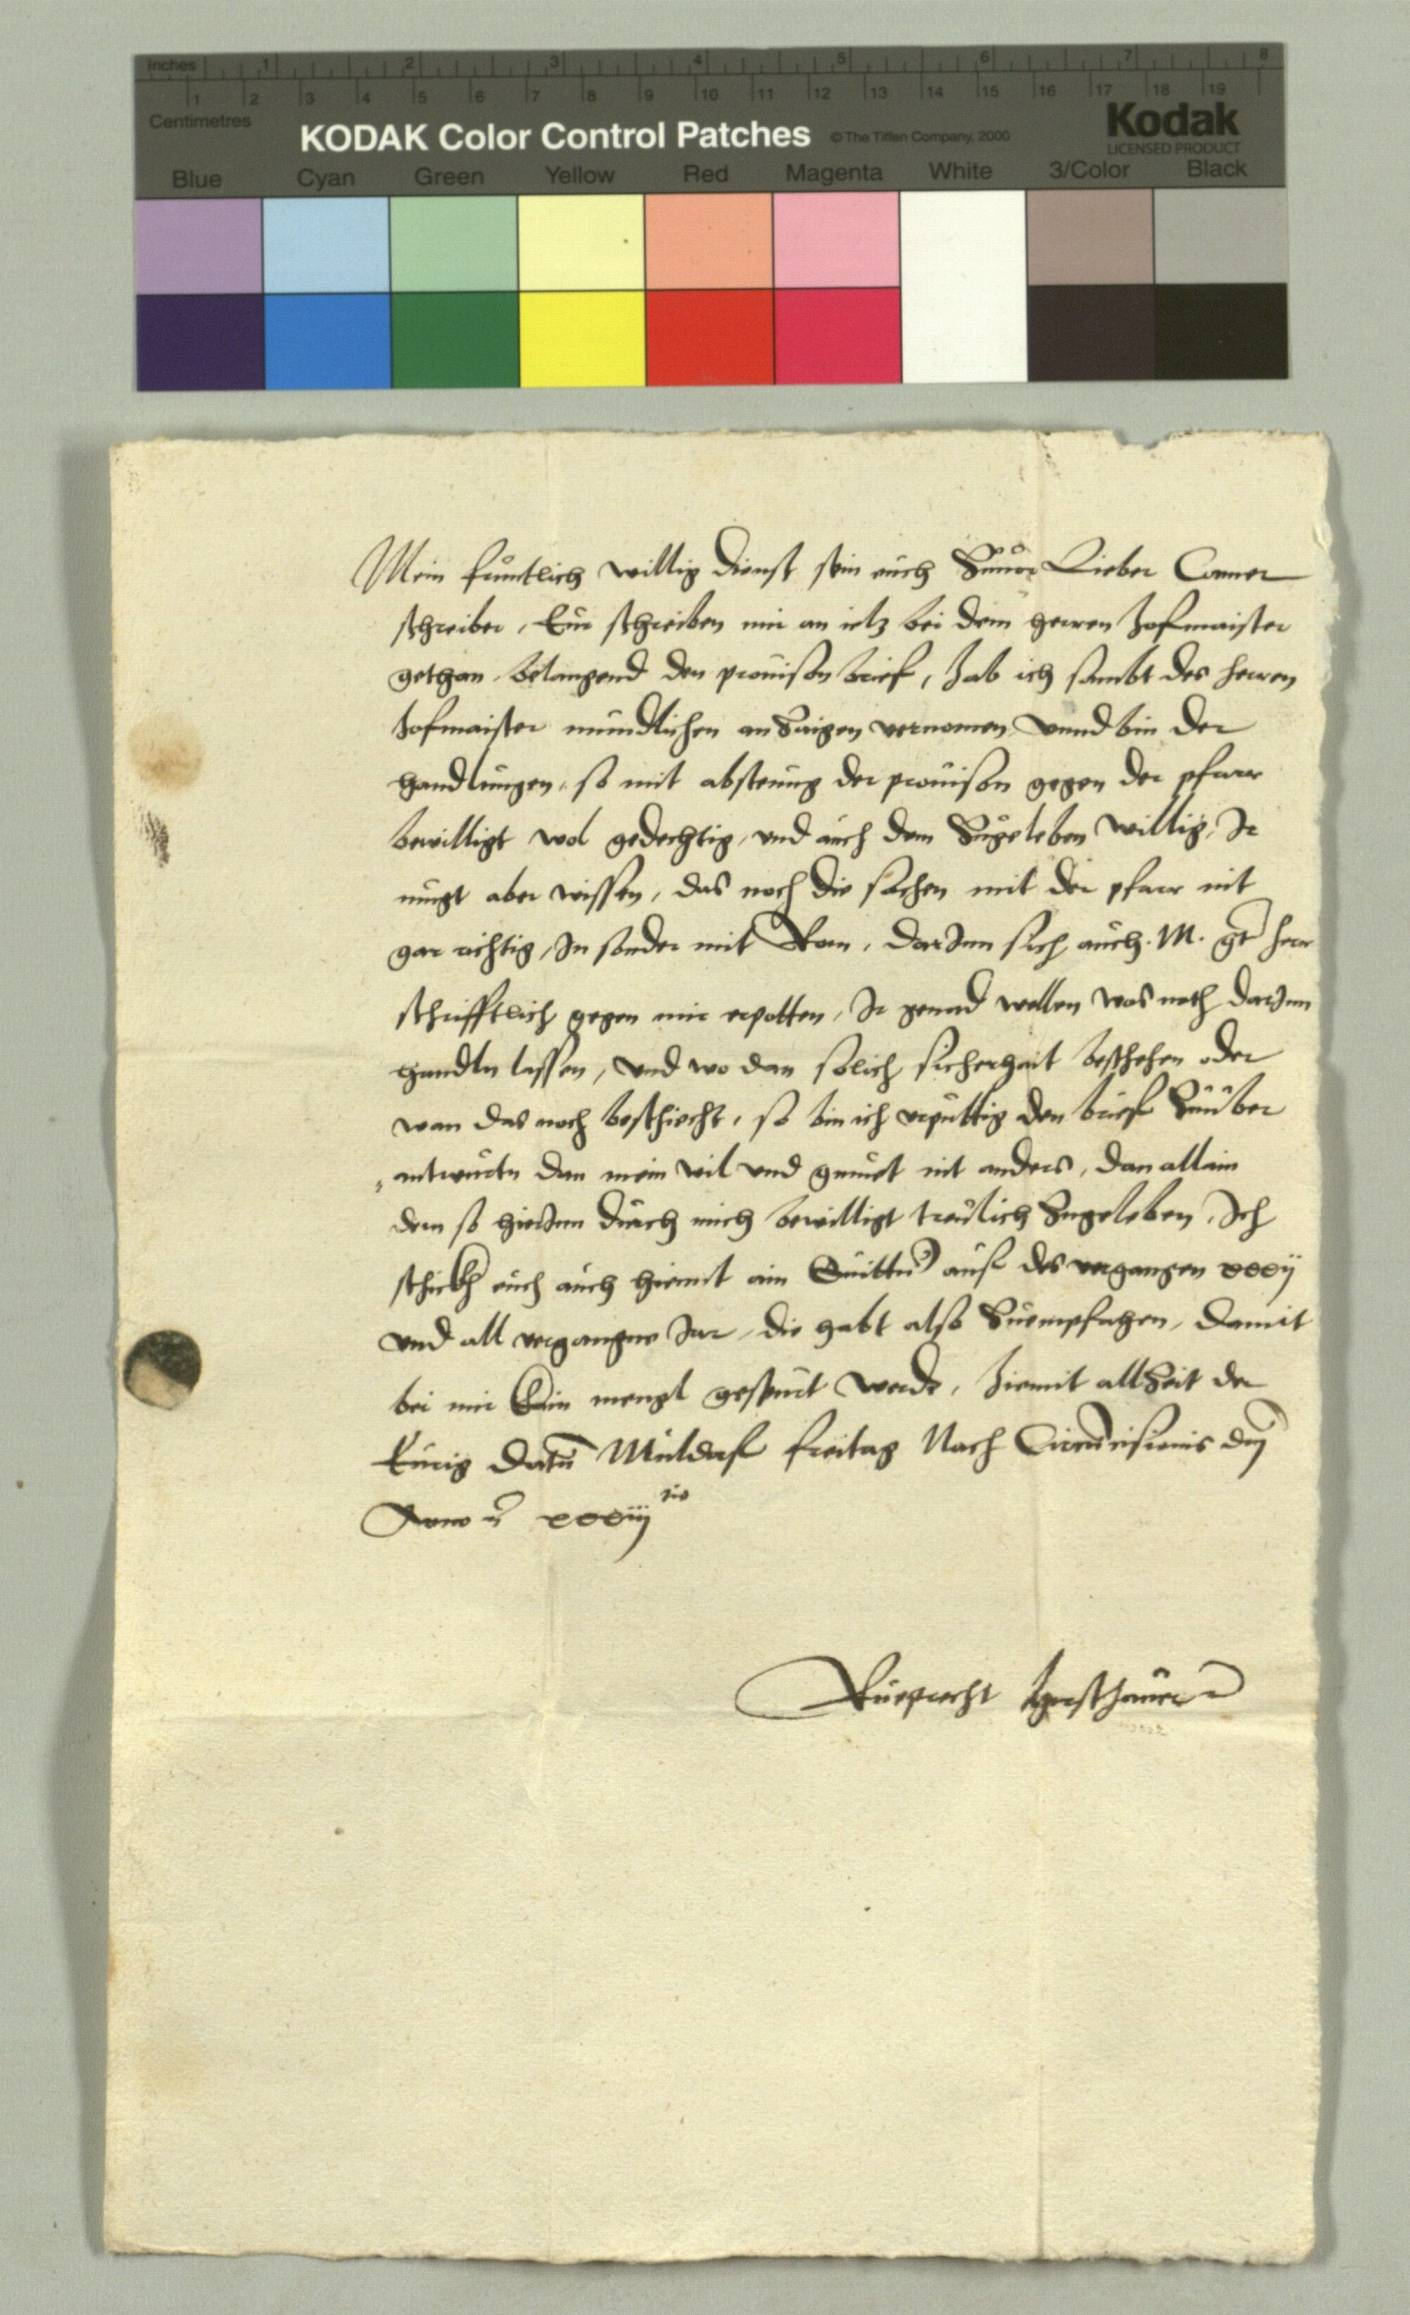 inches 1 2 3 4 5 6 7 8
1 2 3 4 5 6 7 8 9 10 11 12 13 14 15 16 17 18 19
Centimetres
KODAK Color Control Patches © The Tiffen Company, 2000 Kodak
LICENSED PRODUCT
Blue Cyan Green Yellow Red Magenta White 3/Color Black
Mein fruntlich willig dienst sein euch Zuuor Lieber Camer
schreiber, Eur schreiben mir an ietz bei dem herren hofmaister
gethan belangend den prouison brief, hab ich sambt des herren
hofmaister mundlichen anZaigen vernomen vnnd bin der
handlungen, so mit absteung der prouison gegen der pfarr
bewilligt wol gedechtig, vnd auch dem Zugeleben willig, Ir
mugt aber wissen, das noch die sachen mit der pfarr nit
gar richtig, In sonder mit Rom, darInn sich auch M. gē herr
schrifftlich gegen mir erpotten, Ir genad wellen was noth darInn
handln lassen, vnd wo dan solich sicherhait beschehen oder
wan das noch beschiecht, so bin ich vrputtig den brief Zuuber
antwurtn dan mein wil vnd gmuet nit anders, dan allain
dem so hierInn durch mich bewilligt treulich Zugeleben, Ich
schickh euch auch hiemit ain Quittu͂ auf des vergangen xxxij
vnd all vergangne Iar, die habt also Zuempfahen, damit
bei mir khain mengl gespurt werde, hiemit allZeit der
Eurig Datu͂ Muldorf freitag Nach Circu͂cisionis dn͂j
Anno xxxiij tio
Rueprecht